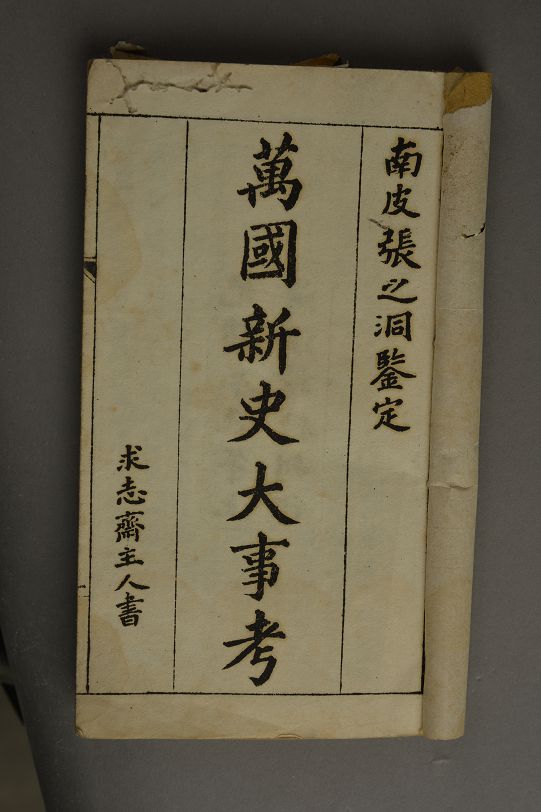 南皮張之洞鑒定
萬國新史大事考
求志齋主人書